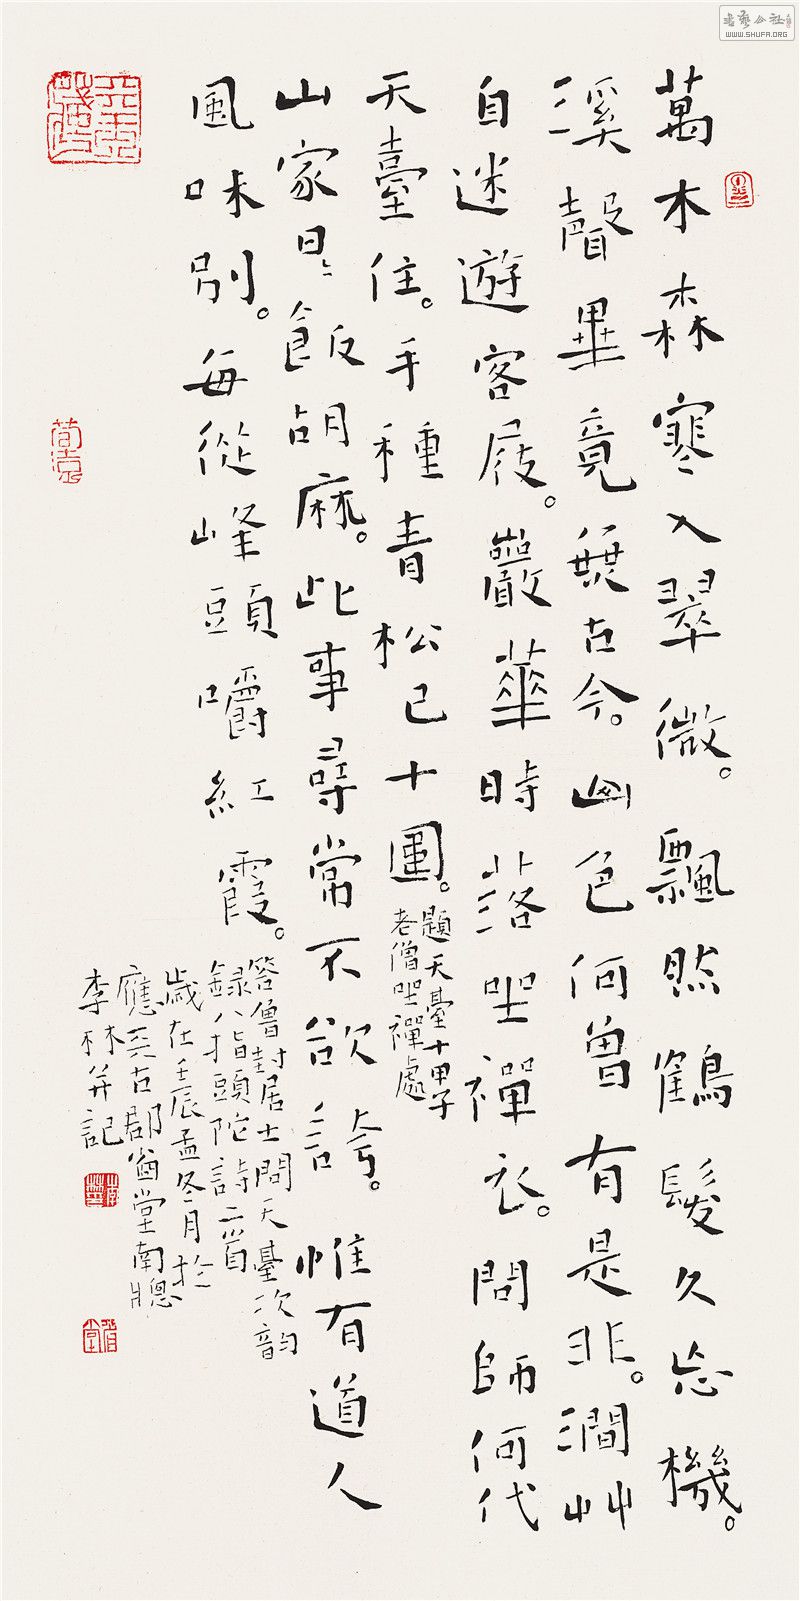 萬木森寒入翠微。飄然鶴髮久忘機。
溪聲畢竟無古今。山色何曾有是非。澗艸
自迷遊客屐。巖華時落坐禪衣。問師何代
天臺住。手種青松已十圍。
題天臺十甲子
老僧坐禪處
山家日〻飯胡麻。此事尋常不欲誇。惟有道人
風味別。每從峰頭嚼紅霞。
答魯封居士問天臺次韵
録八指頭陀詩二首
歲在壬辰孟冬月於
應天古郡堂南牕
李林并記
書藝公社
WWW.SHUFA.ORG